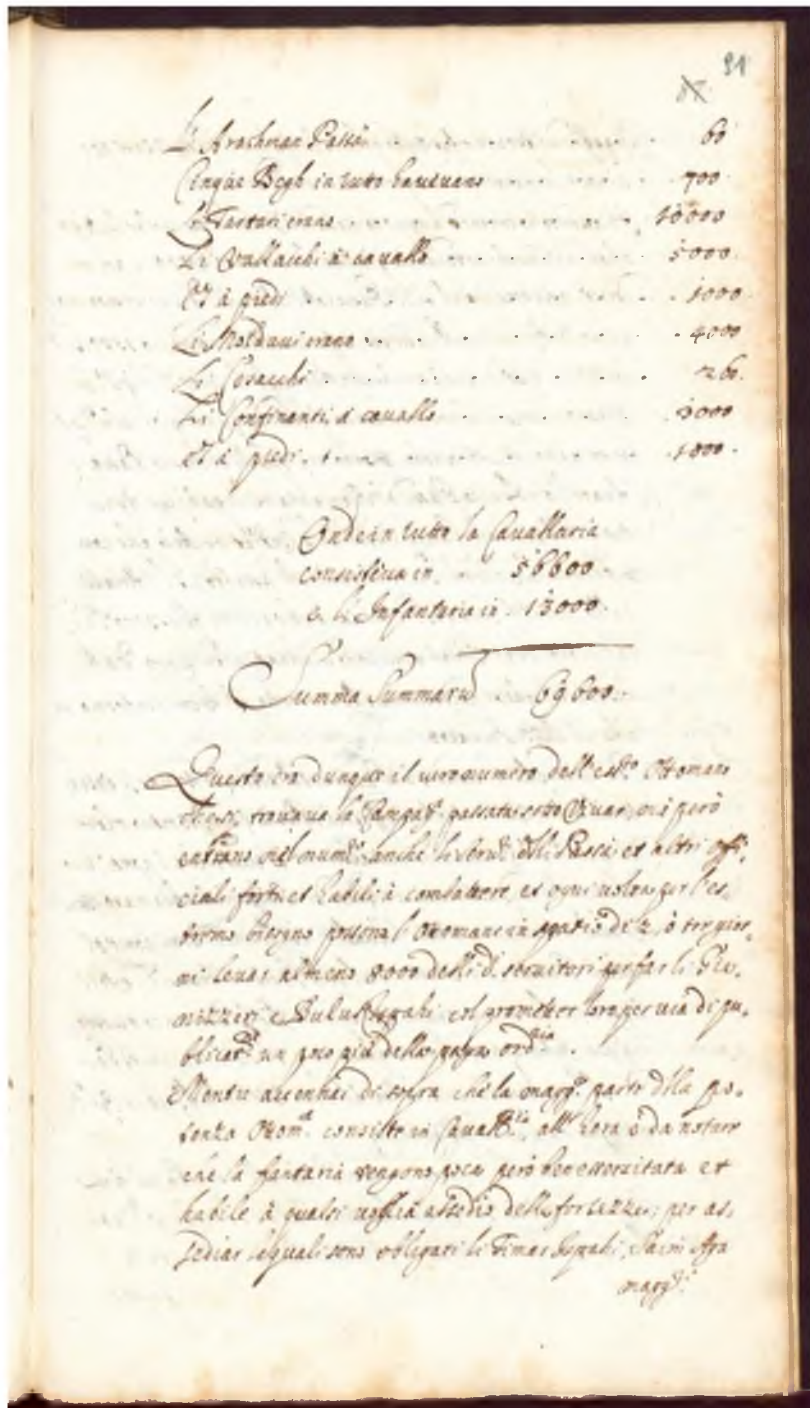 91
Arachman Passà 60
Cinque Begh in tutto haueuano 700
Li Tartari erano 10000
Li Vallacchi à cauallo 5000
Et à piedi 1000
Li Moldaui erano 4000
Li Cosacchi 260
Li Confinanti à cauallo 2000
et à piedi 1000
Onde in tutto la Cauallaria
consisteua in 56600
e l'Infantaria in 13000
Summa Summarũ 69600
Questo era dunque il uero numero dell'ess.to Ottomano
che si trouaua la Campag.a passata sotto Viuar, mà però
entrano nel num.o anche li seru.ri delli Passà, et altri offi¬
ciali forti et habili à combattere, et ogni uolta per l'es¬
tremo bisogno potrà l'Ottomano in spatio di 2, ò tre gior¬
ni leuar almeno 8000 delli d. seruitori per far li Gia¬
nizzeri e Buluk Spahi col prometter loro per uia di pu¬
blicat.ne un poco più della paga ord.ria.
Mentre accennai di sopra che la magg.r parte della po¬
tenza Ottom.a consiste in Cauall.ria, all'hora è da notare
che la fantaria vengono poca però ben essercitata et
habile à qualsi uoglia assedio delle fortezze; per as¬
sediar le quali sono obligati li Timar Spahi, Saini Aga
magg.ri